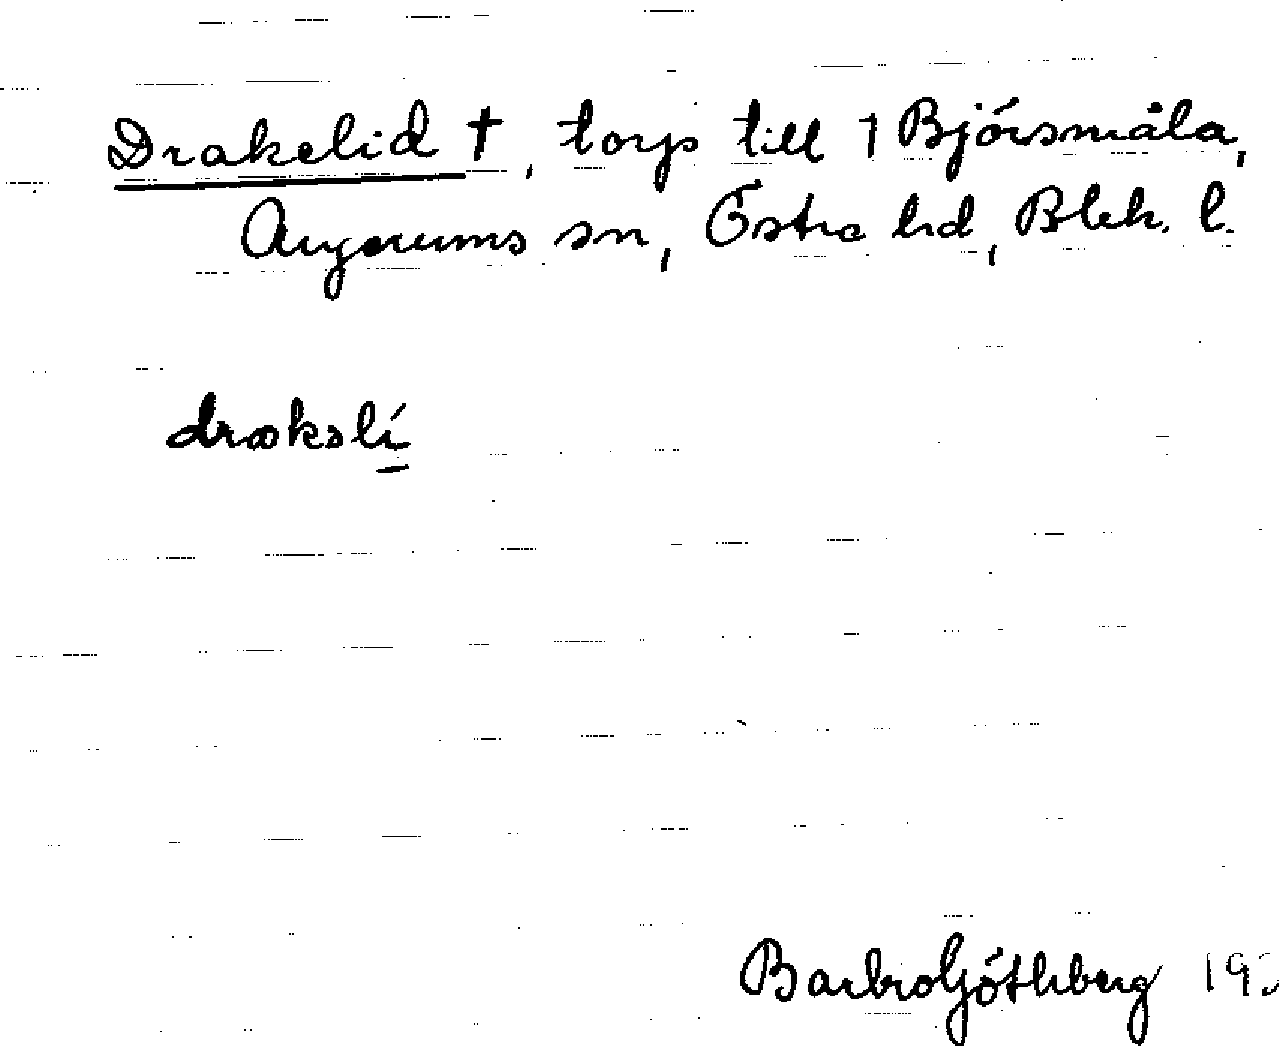 Drakelid †, torp till 1 Björsmåla,
Augerums sn, Östra hd, Blek. l.
drakəlí
Barbro Göthberg 19